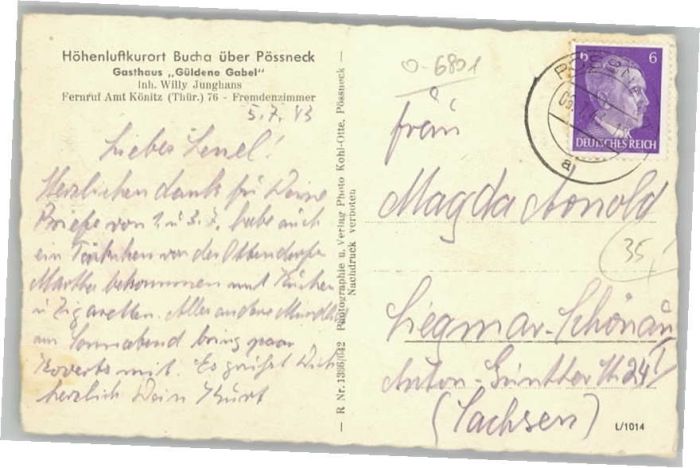 Höhenluftkurort Bucha über Pössneck
Gasthaus „Güldene Gabel"
Inh. Willy Junghans
Fernruf Amt Könitz (Thür.) 76 - Fremdenzimmer
5.7.43
Liebes Lenel!
Herzlichen dank für Deine
Briefe von 2. u 3.7. habe auch
ein Päckchen von der Ottendorfer
Martha bekommen mit Kuchen
u Zigaretten. Alles andere Mündl.
am Sonnabend bring paar
Koverts mit. Es grüßt Dich
herzlich Dein Kurt
R Nr. 1396/042 Photographie u. Verlag Photo Kohl-Otte, Pössneck
Nachdruck verboten
o-6801
6 6
DEUTSCHES REICH
a
Fräu
Magda Arnold
35,-
Siegmar-Schönau
Anton-Günther Str 24 I
(Sachsen)
L/1014